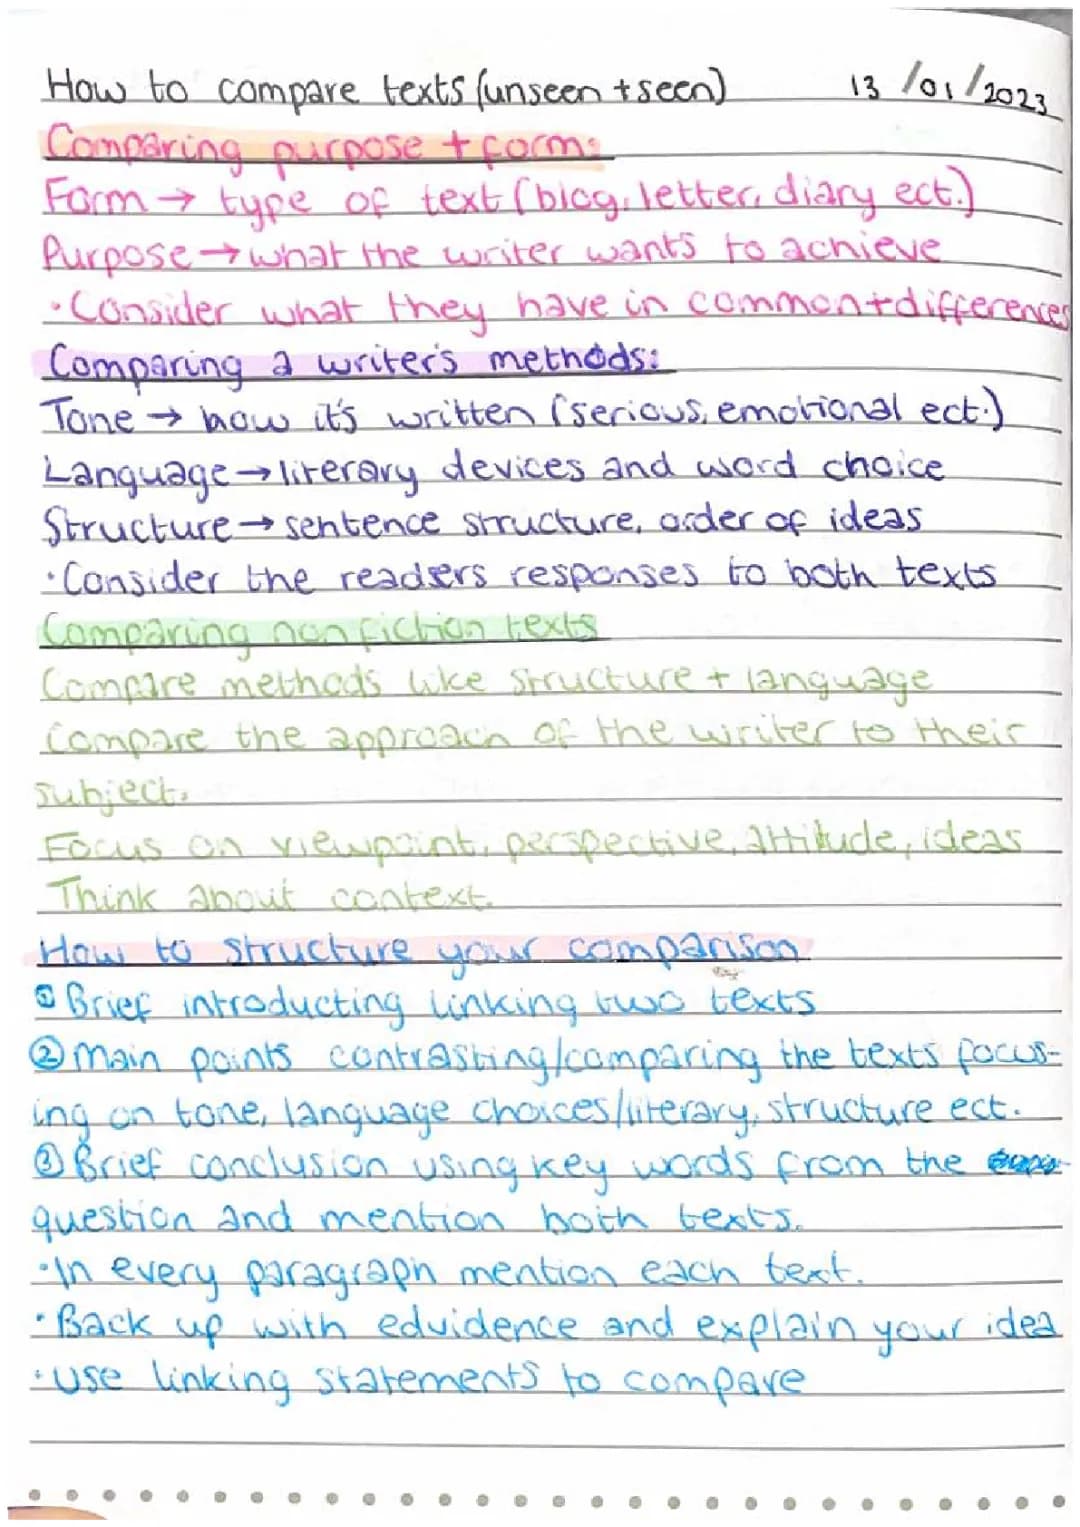 How to compare texts (unseen + seen) 13/01/2023
Comparing purpose + form:
Form → type of text (blog, letter, diary ect.)
Purpose → what the writer wants to achieve
• Consider what they have in common + differences
Comparing a writer's methods:
Tone → how it's written (serious, emotional ect.)
Language → literary devices and word choice
Structure → sentence structure, order of ideas
• Consider the readers responses to both texts
Comparing non fiction texts
Compare methods like structure + language
Compare the approach of the writer to their
subject.
Focus on viewpoint, perspective, attitude, ideas
Think about context.
How to structure your comparison
① Brief introducting linking two texts
② Main points contrasting/comparing the texts focus-
ing on tone, language choices/literary, structure ect.
③ Brief conclusion using key words from the
question and mention both texts.
• In every paragraph mention each text.
• Back up with edvidence and explain your idea
• use linking statements to compare